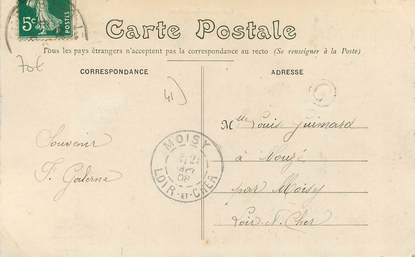 5c
Carte Postale
Tous les pays étrangers n'acceptent pas la correspondance au recto (Se renseigner à la Poste)
CORRESPONDANCE
ADRESSE
706
41
Souvenir
F. Galerne
MOISY
08
LOIR-ET-CHER
Mlle Louis Guimard
à
par Moisy
Loir-et-Cher